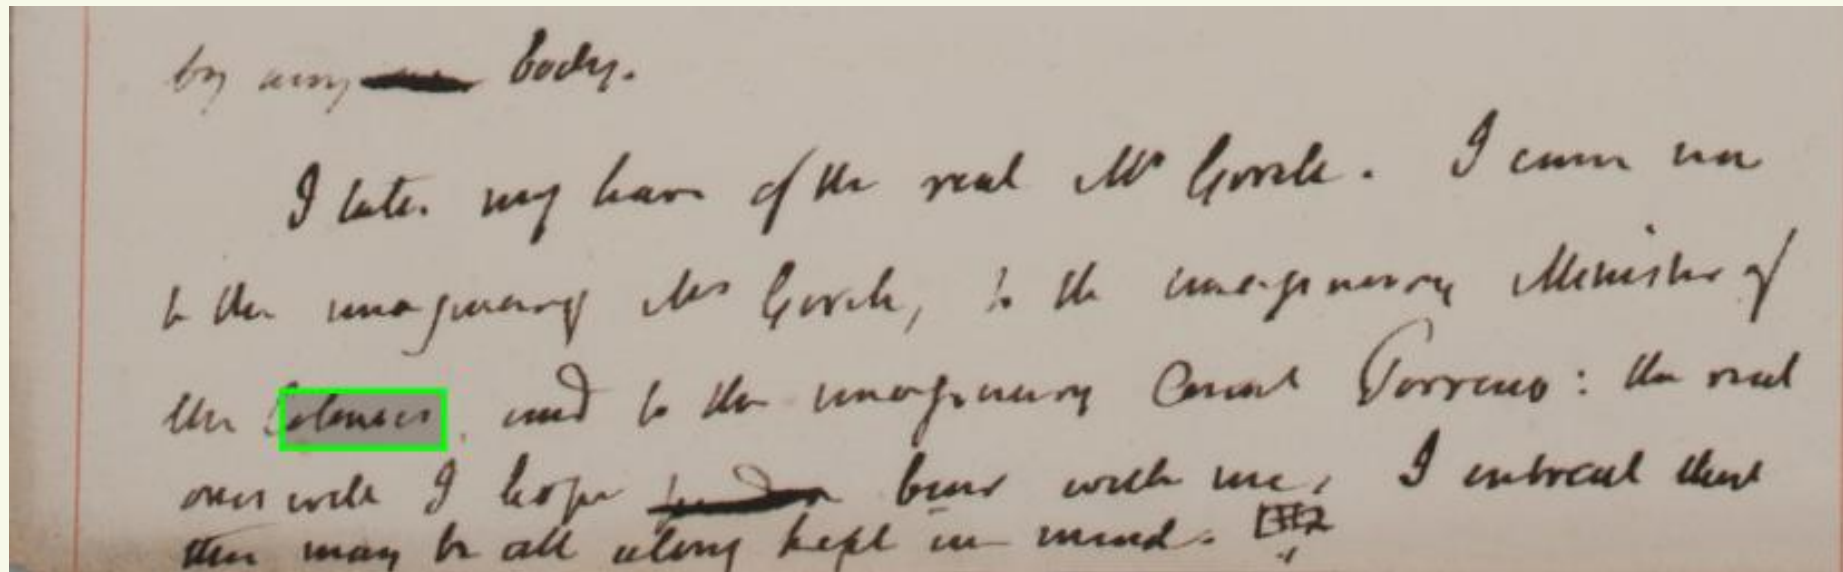 by any body.
I take my leave of the real Mr Gorch. I come now
to the imaginary Mr Gorch, to the imaginary Minister of
the Colonies, and to the imaginary Count Torreno: the real
ones will I hope bear with me, I entreat that
this may be all along kept in mind.